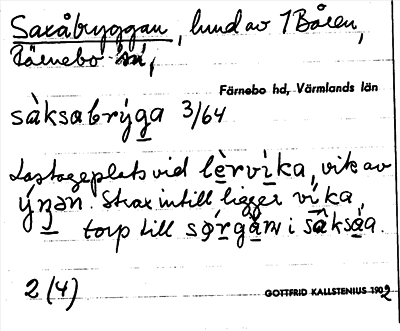 Saxåbryggan, hund av 1 Båren,
Färnebo sn,
Färnebo hd, Värmlands län
sàksabrýga 3/64
Lastageplats vid lèrvika, vik av
ýŋən. Strax intill ligger víka,
torp till sǫrgǻn i sàksåa.
2 (4)
GOTTFRID KALLSTENIUS 1902